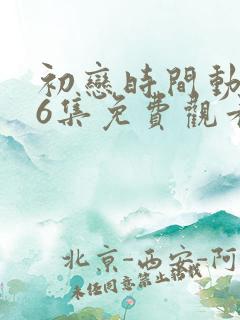 初戀時間動
6集免費觀看
北京-西安-阿
未經同意禁止轉載